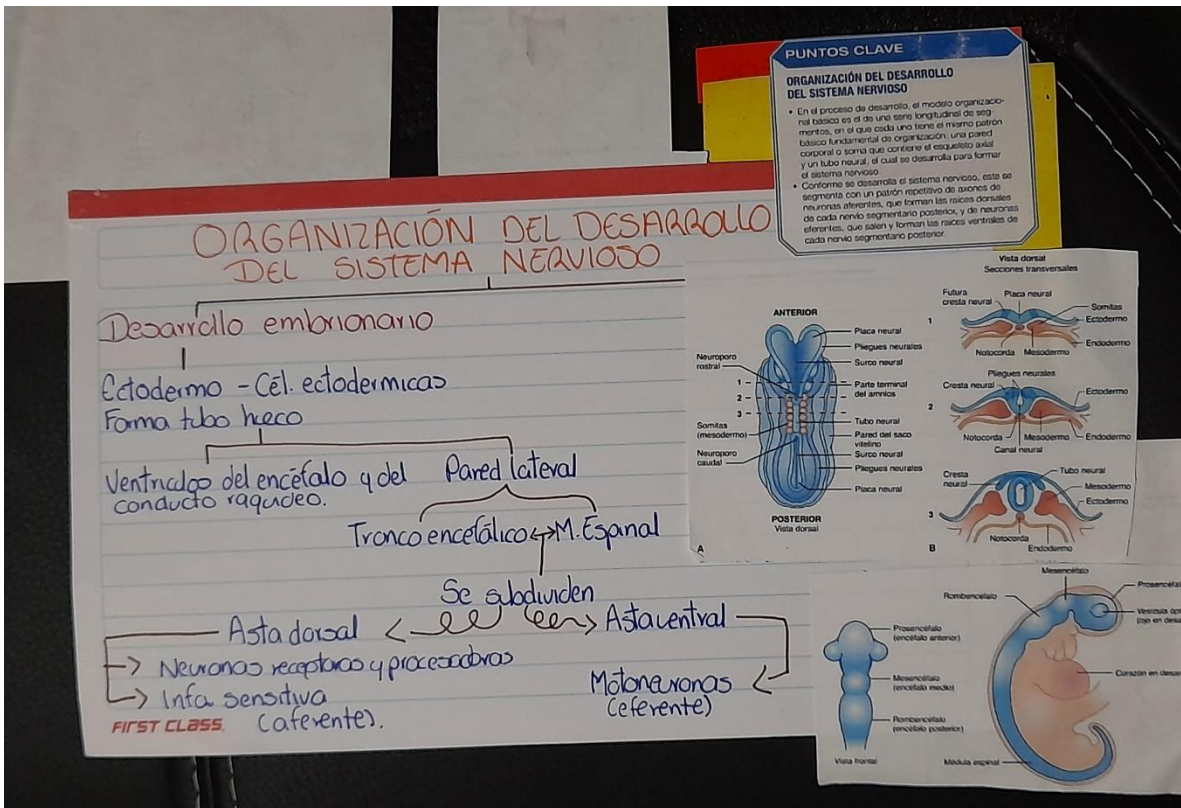 PUNTOS CLAVE
ORGANIZACIÓN DEL DESARROLLO
DEL SISTEMA NERVIOSO
• En el proceso de desarrollo, el modelo organizacio-
nal básico es el de una serie longitudinal de seg-
mentos, en el que cada uno tiene el mismo patrón
básico fundamental de organización: una pared
corporal o soma que contiene el esqueleto axial
y un tubo neural, el cual se desarrolla para formar
el sistema nervioso.
• Conforme se desarrolla el sistema nervioso, este se
segmenta con un patrón repetitivo de axones de
neuronas aferentes, que forman las raíces dorsales
de cada nervio segmentario posterior, y de neuronas
eferentes, que salen y forman las raíces ventrales de
cada nervio segmentario posterior.
ORGANIZACIÓN DEL DESARROLLO
DEL SISTEMA NERVIOSO
Desarrollo embrionario
Ectodermo - Cél. ectodermicas
Forma tubo hueco
Ventriculos del encéfalo y del
conducto raquideo.
Pared lateral
Tronco encefálico ↔ M. Espinal
Se subdividen
Asta dorsal
Asta ventral
→ Neuronas receptoras y procesadoras
→ Info sensitiva
(aferente).
Motoneuronas
(eferente)
FIRST CLASS
ANTERIOR
Neuroporo
rostral
1
2
3
Somitas
(mesodermo)
Neuroporo
caudal
Placa neural
Pliegues neurales
Surco neural
Parte terminal
del amnios
Tubo neural
Pared del saco
vitelino
Surco neural
Pliegues neurales
Placa neural
POSTERIOR
Vista dorsal
A
Vista dorsal
Secciones transversales
Futura
cresta neural
Placa neural
Somitas
Ectodermo
1
Endodermo
Notocorda
Mesodermo
Pliegues neurales
Cresta neural
Ectodermo
2
Notocorda
Mesodermo
Endodermo
Canal neural
Cresta
neural
Tubo neural
Mesodermo
Ectodermo
3
Notocorda
Endodermo
B
Prosencéfalo
(encéfalo anterior)
Mesencéfalo
(encéfalo medio)
Rombencéfalo
(encéfalo posterior)
Vista frontal
Mesencéfalo
Rombencéfalo
Prosencéfal
Vesícula
(ojo en desa
Corazón en desar
Médula espinal